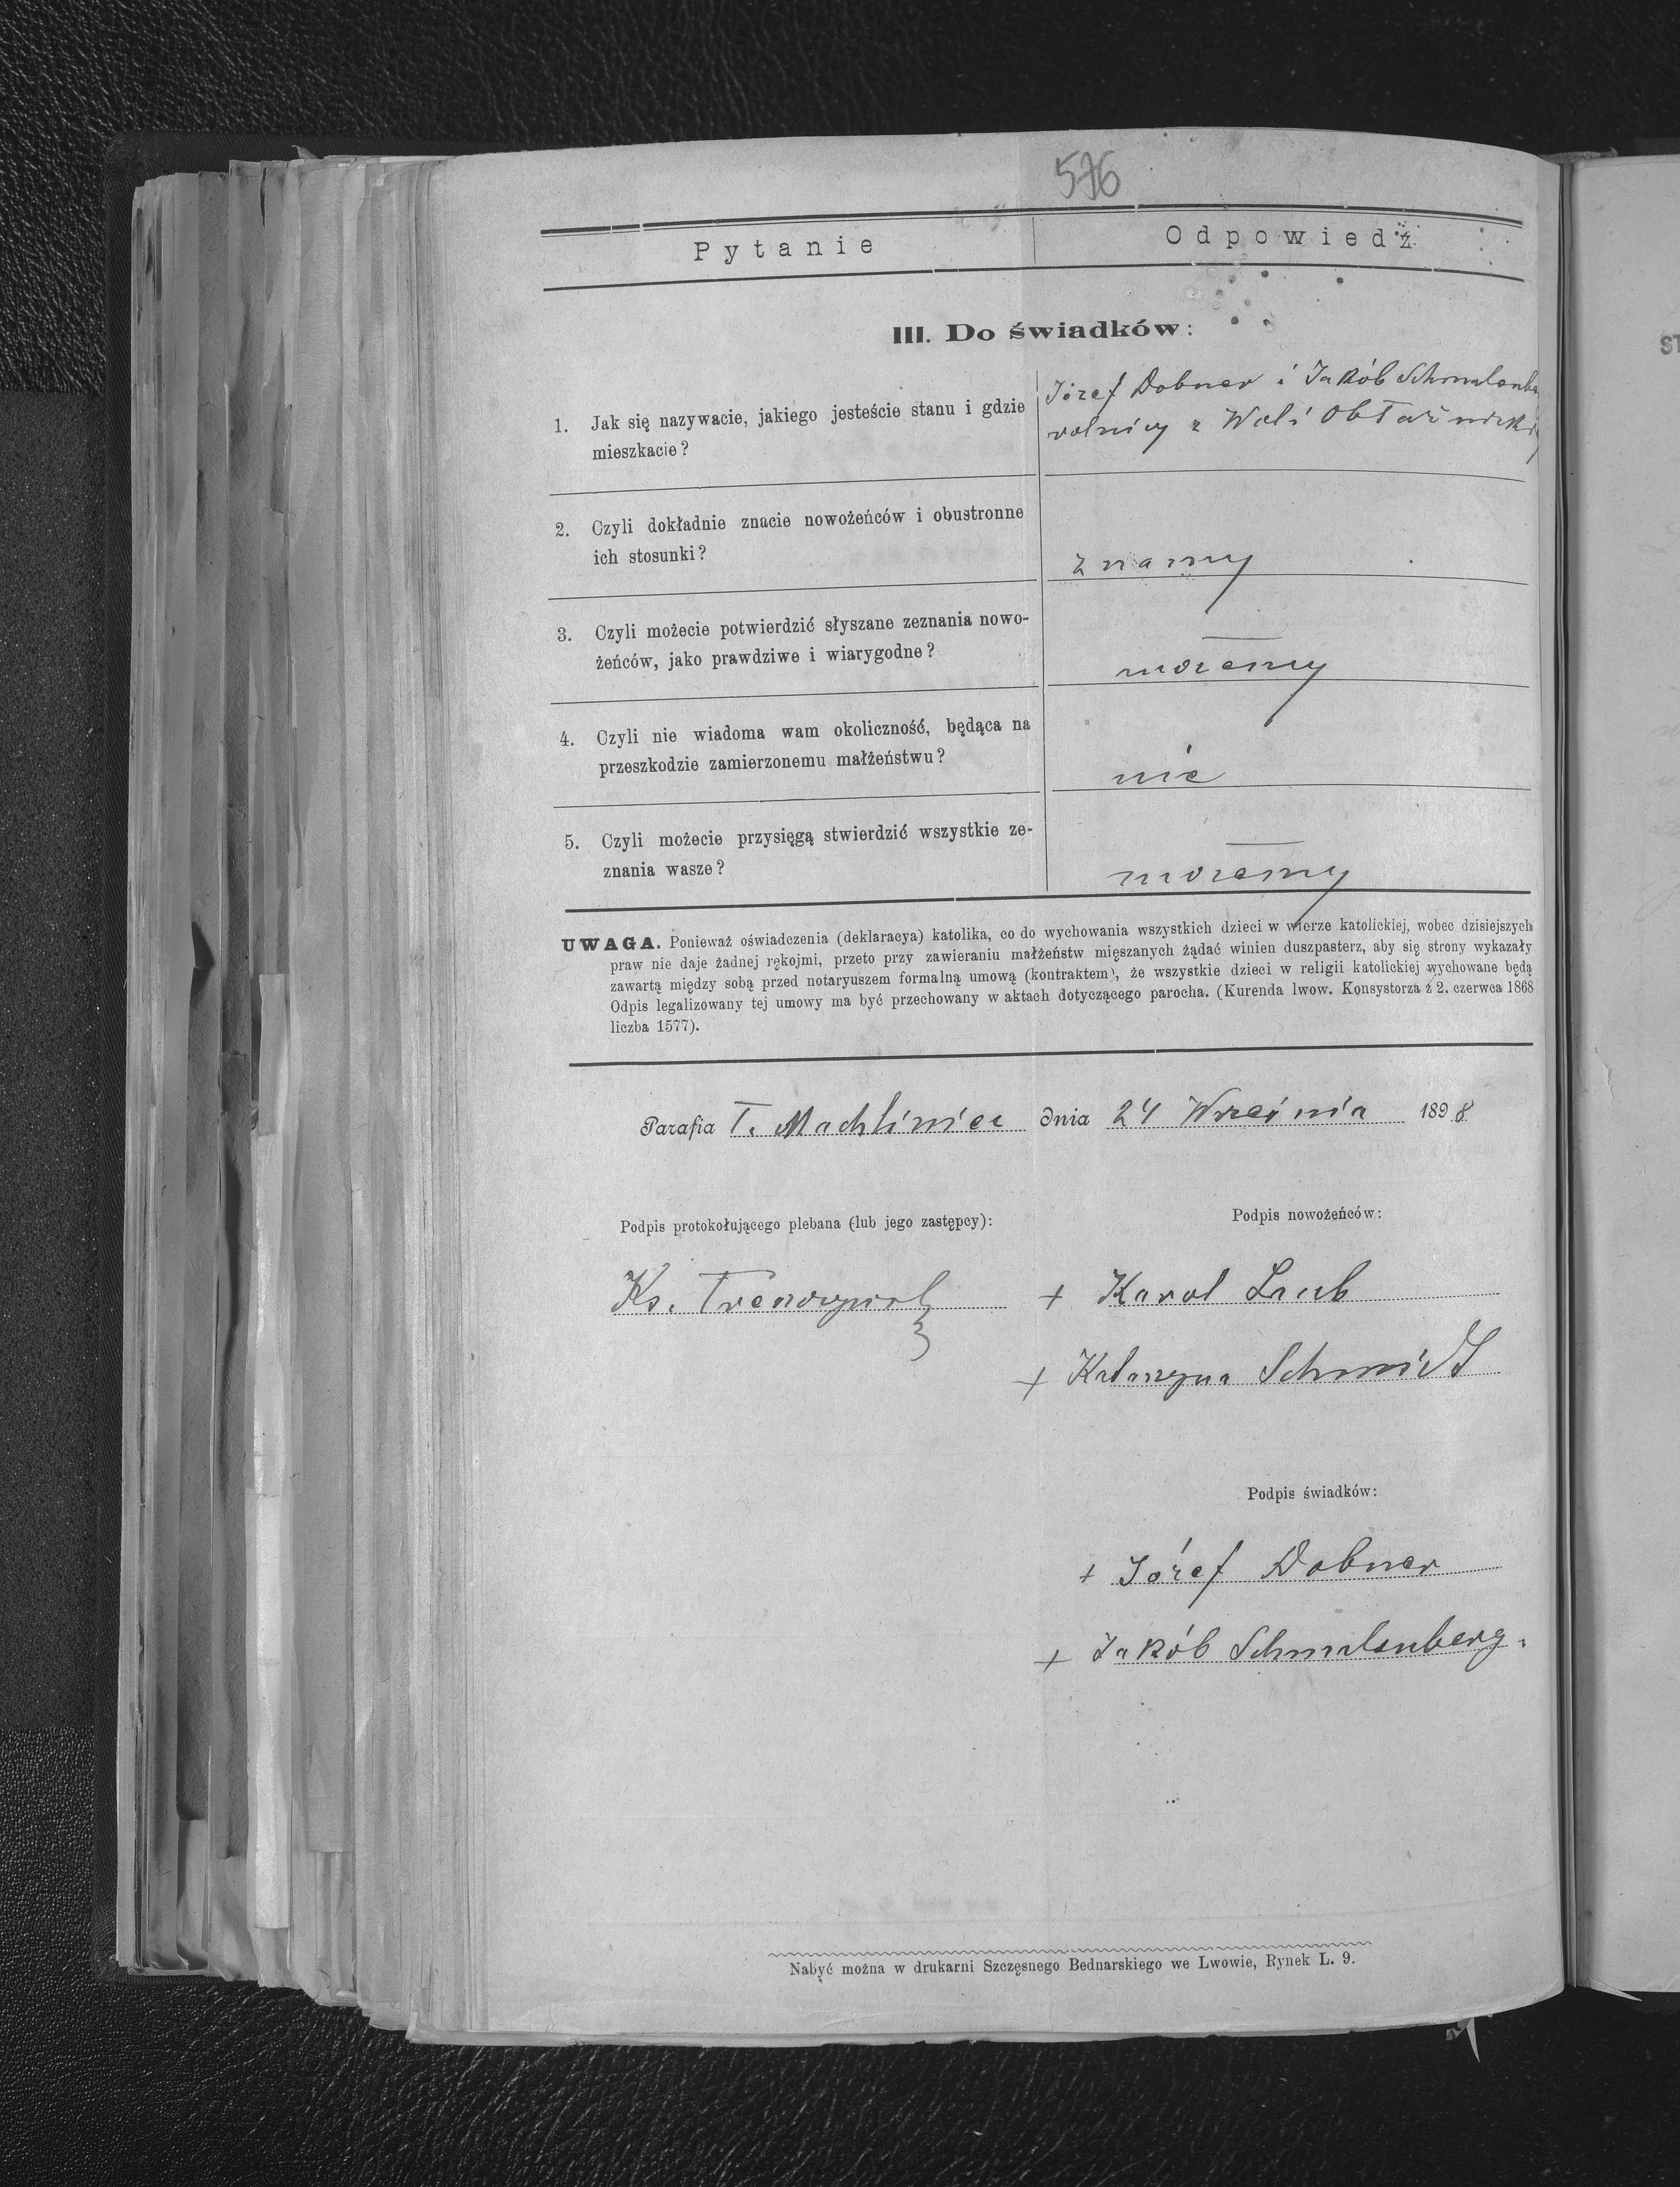 576
Pytanie
Odpowiedź
III. Do świadków:
1. Jak się nazywacie, jakiego jesteście stanu i gdzie
mieszkacie?
Józef Dobner i Jakób Schmalenbe
rolnicy z Woli Obłaźnickiej
2. Czyli dokładnie znacie nowożeńców i obustronne
ich stosunki?
znamy
3. Czyli możecie potwierdzić słyszane zeznania nowo-
żeńców, jako prawdziwe i wiarygodne?
możemy
4. Czyli nie wiadoma wam okoliczność, będąca na
przeszkodzie zamierzonemu małżeństwu?
nie
5. Czyli możecie przysięgą stwierdzić wszystkie ze-
znania wasze?
możemy
UWAGA. Ponieważ oświadczenia (deklaracya) katolika, co do wychowania wszystkich dzieci w wierze katolickiej, wobec dzisiejszych
praw nie daje żadnej rękojmi, przeto przy zawieraniu małżeństw mięszanych żądać winien duszpasterz, aby się strony wykazały
zawartą między sobą przed notaryuszem formalną umową (kontraktem), że wszystkie dzieci w religii katolickiej wychowane będą
Odpis legalizowany tej umowy ma być przechowany w aktach dotyczącego parocha. (Kurenda lwow. Konsystorza z 2. czerwca 1868
liczba 1577).
Parafia T. Machliniec dnia 24 Września 1898
Podpis protokołującego plebana (lub jego zastępcy):
Podpis nowożeńców:
Ks.
+ Karol Laub
+ Katarzyna Schmidt
Podpis świadków:
+ Józef Dobner
+ Jakób Schmalenberg.
Nabyć można w drukarni Szczęsnego Bednarskiego we Lwowie, Rynek L. 9.
ST